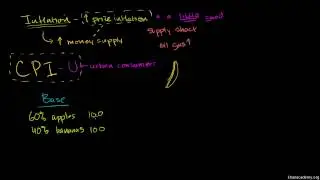 Inflation - ↑ price inflation
↑ money supply
supply shock
oil
CPI - U urban consumers
Base
60% apples 100
40% bananas 100
khanacademy.org